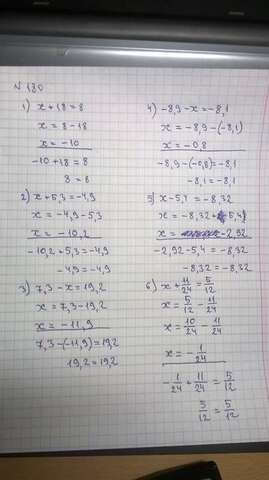 № 180
1) x + 18 = 8
x = 8 - 18
x = -10
-10 + 18 = 8
8 = 8
2) x + 5,3 = -4,9
x = -4,9 - 5,3
x = -10,2
-10,2 + 5,3 = -4,9
-4,9 = -4,9
3) 7,3 - x = 19,2
x = 7,3 - 19,2
x = -11,9
7,3 - (-11,9) = 19,2
19,2 = 19,2
4) -8,9 - x = -8,1
x = -8,9 - (-8,1)
x = -0,8
-8,9 - (-0,8) = -8,1
-8,1 = -8,1
5) x - 5,4 = -8,32
x = -8,32 + 5,4
x = -2,92
-2,92 - 5,4 = -8,32
-8,32 = -8,32
6) x + 11/24 = 5/12
x = 5/12 - 11/24
x = 10/24 - 11/24
x = -1/24
-1/24 + 11/24 = 5/12
5/12 = 5/12